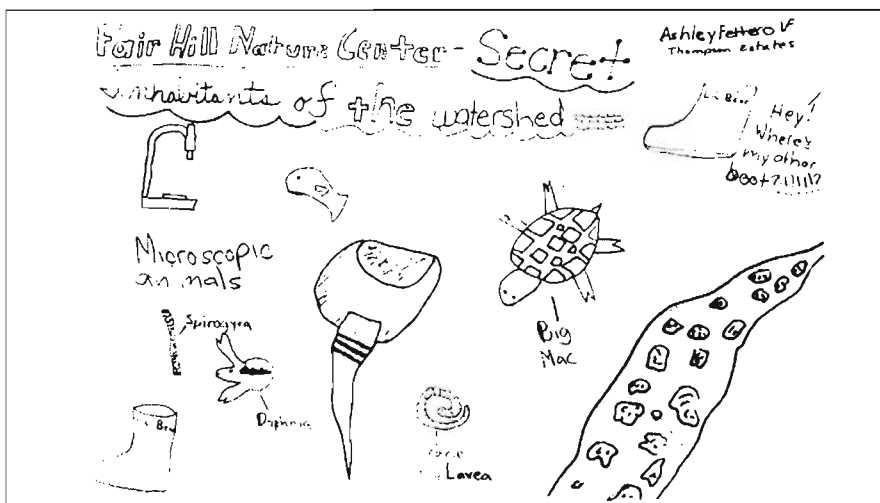 Fair Hill Nature Center - Secret
inhabitants of the watershed
Ashley Fettero VF
Thompson Estates
Hey!
Where's
my other
Boot?!!!!!?
Microscopic
animals
Spirogyra
Daphnia
Big
Mac
Lavea